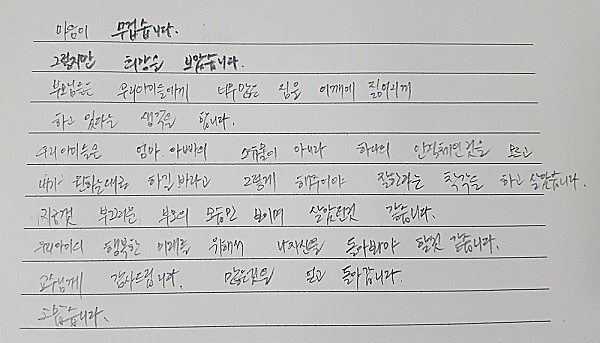 마음이 무겁습니다.
그렇지만 희망을 보았습니다.
부모님들은 우리아이들에게 너무많은 짐을 어깨에 짊어지게
하고 있다는 생각을 합니다.
우리아이들은 엄마.아빠의 소유물이 아니라 하나의 인격체인것을 모르고
내가 원하는대로 하길 바라고 그렇게 해주어야 잘한다는 착각을 하고 살았습니다.
지금껏 부끄러운 부모의 모습만 보이며 살았던것 같습니다.
우리아이의 행복한 미래를 위해서 나자신을 돌아봐야 할것 같습니다.
교수님께 감사드립니다. 많은것을 얻고 돌아갑니다.
고맙습니다.